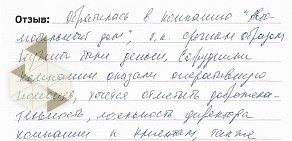 Отзыв: Обратилась в компанию "Авто-
мобильный дом", т.к. срочным образом
нужны были деньги. Сотрудники
компании оказали оперативную
помощь, хочется отметить доброжела-
тельность, лояльность директора
компании к клиентам, также